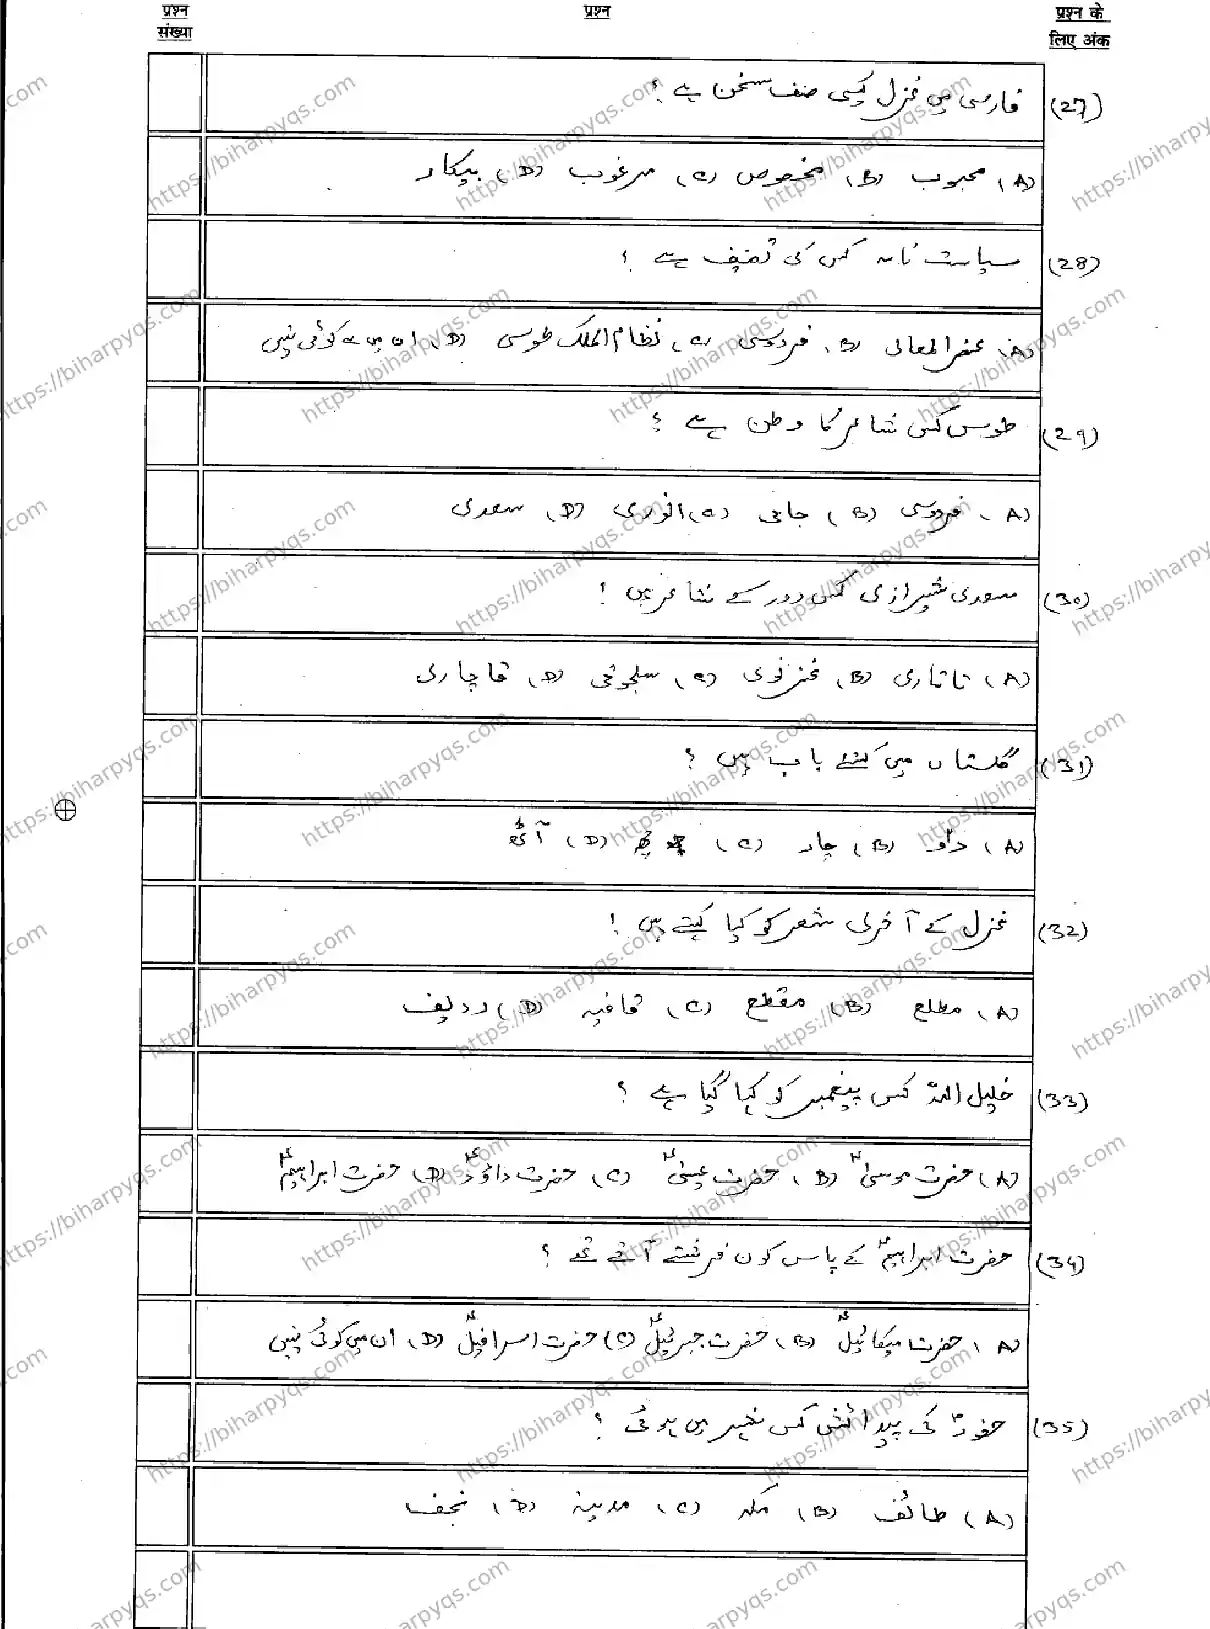 प्रश्न संख्या
प्रश्न
प्रश्न के लिए अंक
(27) فارسی میں غزل کیسی صنف سخن ہے ؟
(A) محبوب (B) مخصوص (C) مرغوب (D) بیکار
(28) سیاست نامہ کس کی تصنیف ہے ؟
(A) عنصر المعالی (B) فردوسی (C) نظام الملک طوسی (D) ان میں سے کوئی نہیں
(29) طوس کس شاعر کا وطن ہے ؟
(A) فردوسی (B) جامی (C) انوری (D) سعدی
(30) سعدی شیرازی کس دور کے شاعر ہیں ؟
(A) تاتاری (B) غزنوی (C) سلجوقی (D) قاچاری
(31) گلستاں میں کتنے باب ہیں ؟
(A) دو (B) چار (C) چھ (D) آٹھ
(32) غزل کے آخری شعر کو کیا کہتے ہیں ؟
(A) مطلع (B) مقطع (C) قافیہ (D) ردیف
(33) خلیل اللہ کس پیغمبر کو کہا گیا ہے ؟
(A) حضرت موسیٰؑ (B) حضرت عیسیٰؑ (C) حضرت داؤدؑ (D) حضرت ابراہیمؑ
(34) حضرت ابراہیمؑ کے پاس کون فرشتے آئے تھے ؟
(A) حضرت میکائیلؑ (B) حضرت جبرئیلؑ (C) حضرت اسرافیلؑ (D) ان میں کوئی نہیں
(35) حضورؐ کی پیدائش کس شہر میں ہوئی ؟
(A) طائف (B) مکہ (C) مدینہ (D) نجف
https://biharpyqs.com